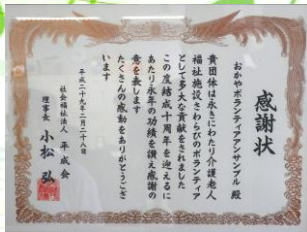 感謝状
おかやボランティアアンサンブル 殿
貴団体は永きにわたり介護老人
福祉施設さわらびのボランティア
として多大な貢献をされました
この度結成十周年を迎えるに
あたり永年の功績を讃え感謝の
意を表します
たくさんの感動をありがとうござ
います
平成二十九年二月二十八日
社会福祉法人 平成会
理事長 小松 弘